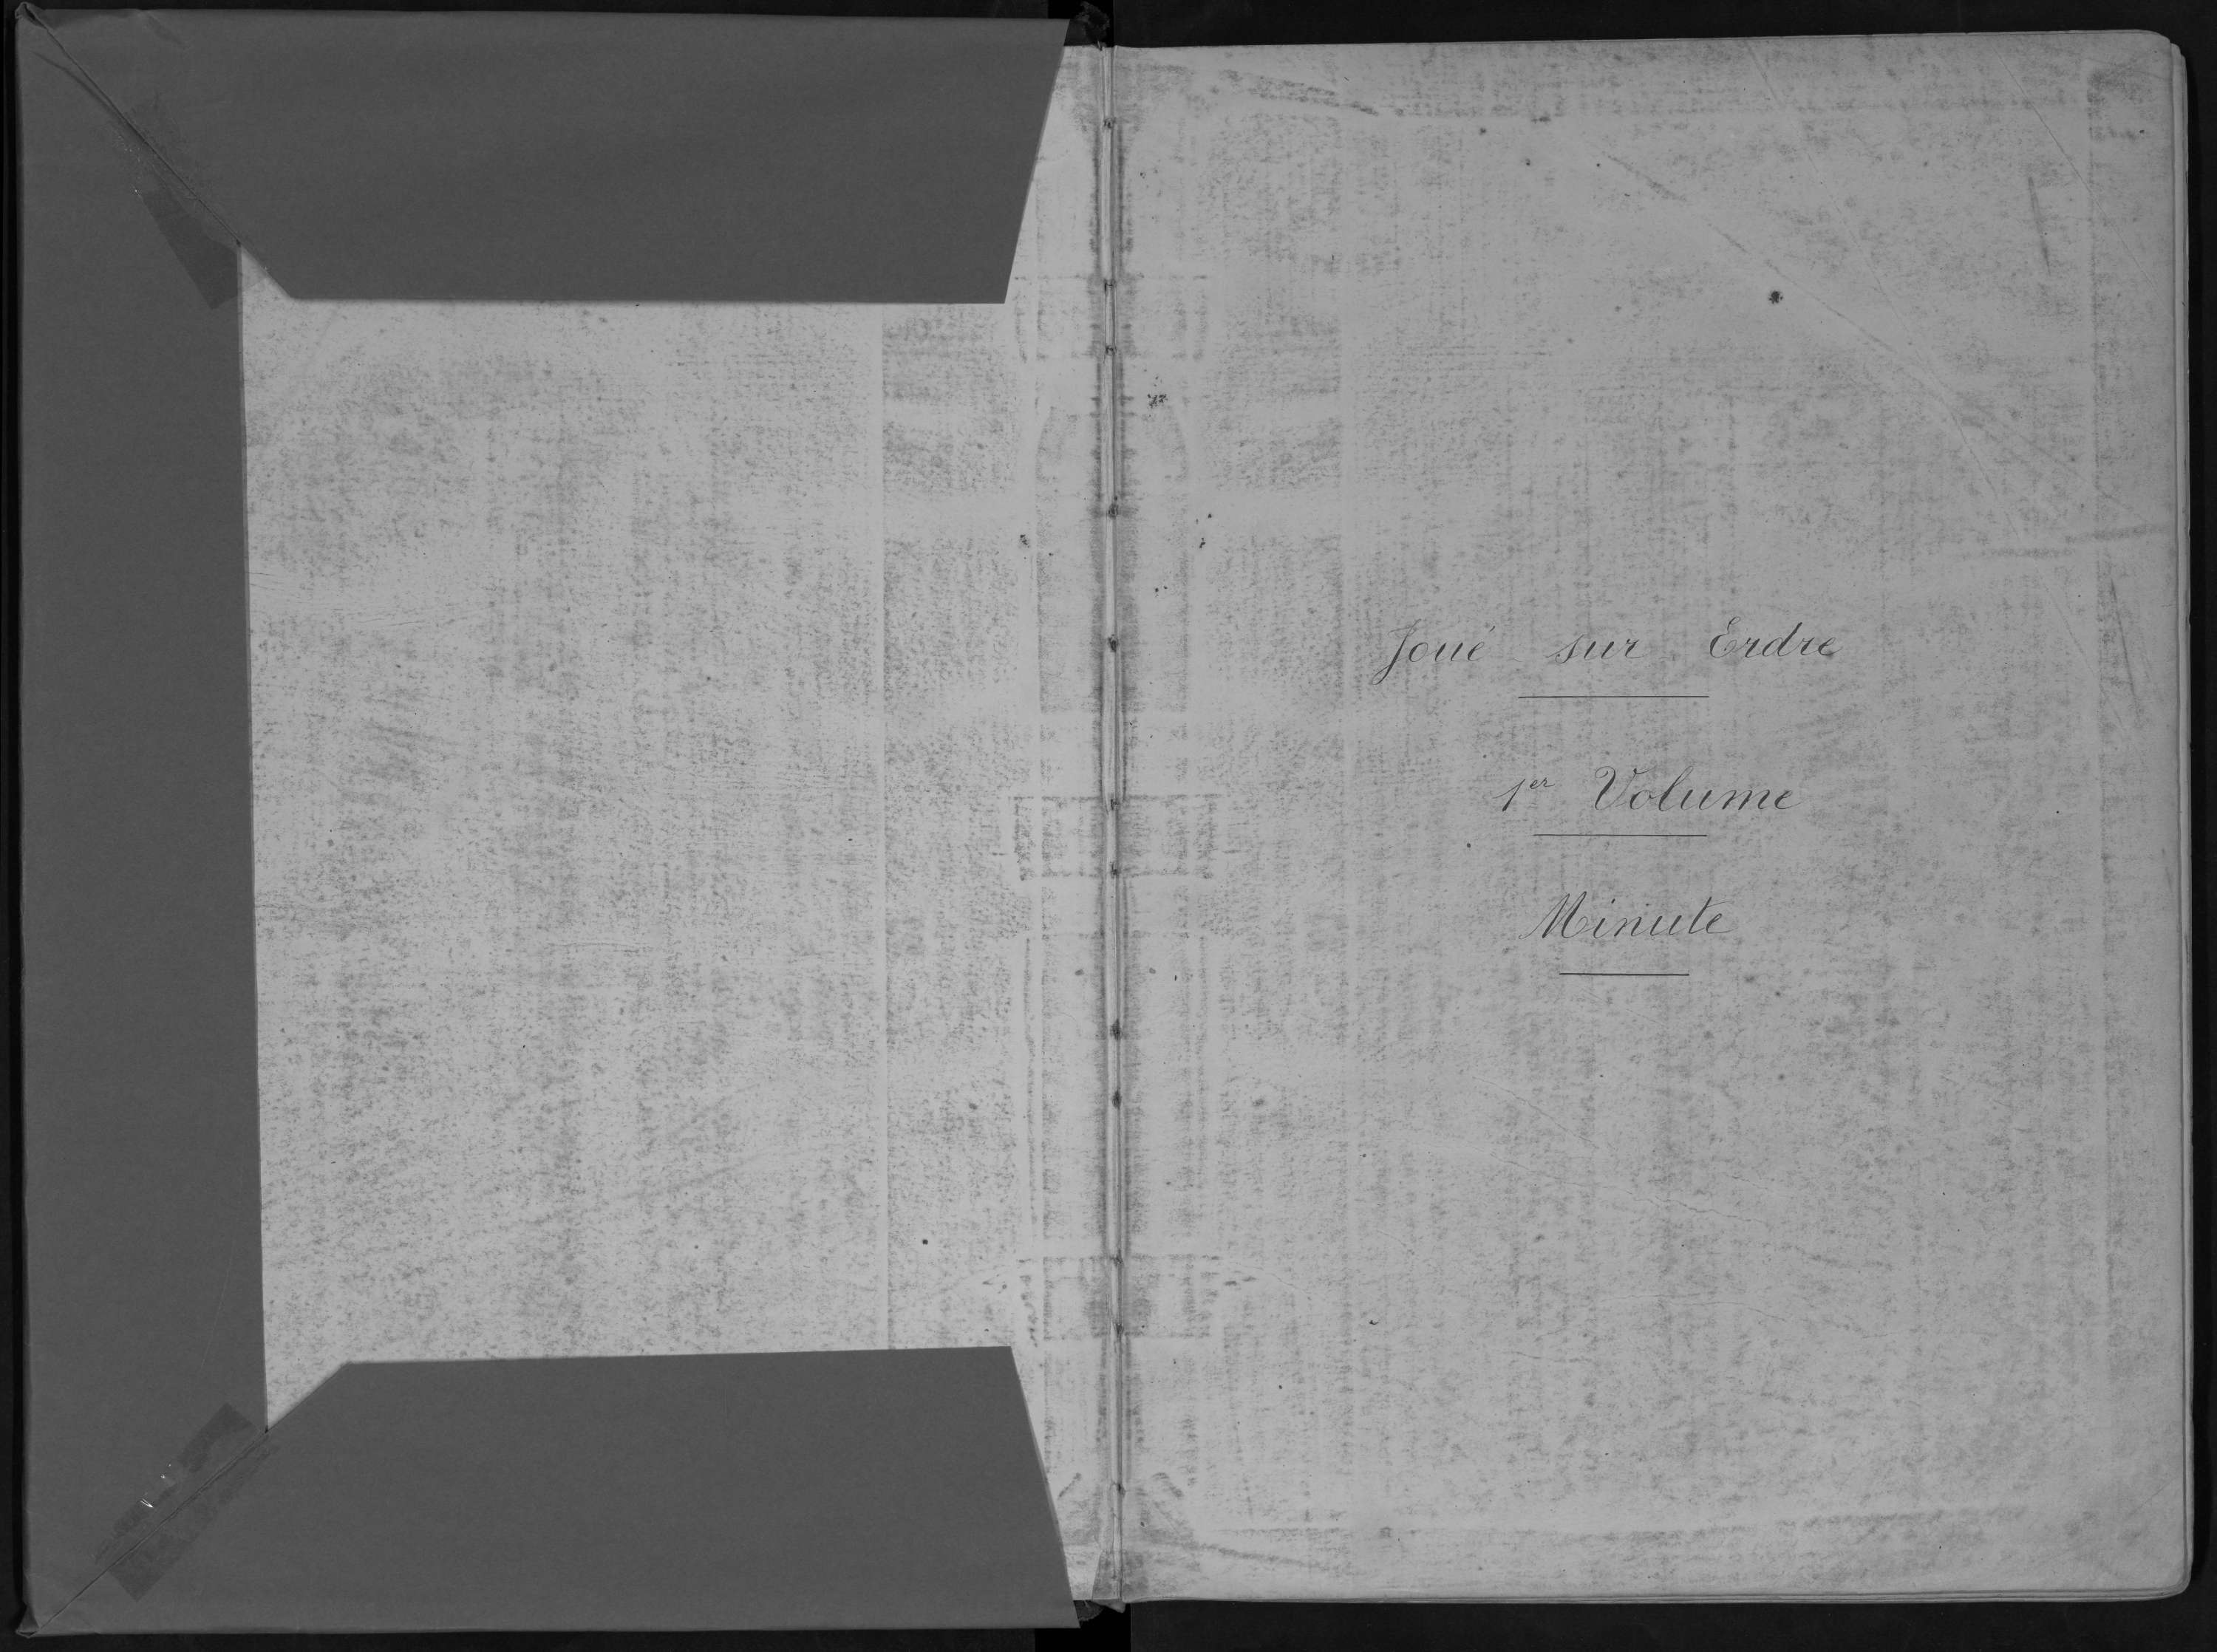 Joué sur Erdre
1er Volume
Minute